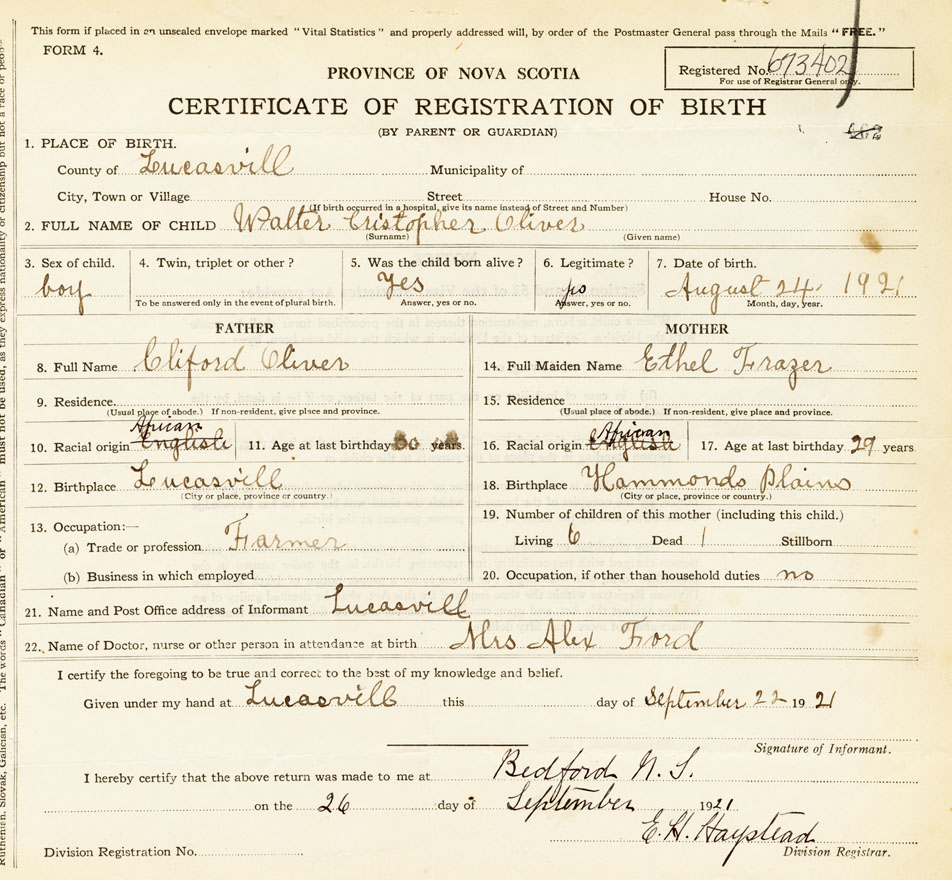 This form if placed in an unsealed envelope marked "Vital Statistics" and properly addressed will, by order of the Postmaster General pass through the Mails "FREE."
FORM 4.
Registered No. 673402
For use of Registrar General only.
PROVINCE OF NOVA SCOTIA
CERTIFICATE OF REGISTRATION OF BIRTH
(BY PARENT OR GUARDIAN)
1. PLACE OF BIRTH.
County of Lucasvill Municipality of
City, Town or Village Street House No.
(If birth occurred in a hospital, give its name instead of Street and Number)
2. FULL NAME OF CHILD Walter Cristopher Oliver
(Surname) (Given name)
3. Sex of child. 4. Twin, triplet or other? 5. Was the child born alive? 6. Legitimate? 7. Date of birth.
boy Yes yes August 24. 1921
To be answered only in the event of plural birth. Answer, yes or no. Answer, yes or no. Month, day, year.
FATHER MOTHER
8. Full Name Cliford Oliver 14. Full Maiden Name Ethel Frazer
9. Residence. 15. Residence
(Usual place of abode.) If non-resident, give place and province. (Usual place of abode.) If non-resident, give place and province.
African African
10. Racial origin English 11. Age at last birthday 30 years. 16. Racial origin English 17. Age at last birthday 29 years
12. Birthplace Lucasvill 18. Birthplace Hammonds Plains
(City or place, province or country.) (City or place, province or country.)
13. Occupation:— 19. Number of children of this mother (including this child.)
(a) Trade or profession Farmer Living 6 Dead 1 Stillborn
(b) Business in which employed 20. Occupation, if other than household duties no
21. Name and Post Office address of Informant Lucasvill
22. Name of Doctor, nurse or other person in attendance at birth Mrs Alex Ford
I certify the foregoing to be true and correct to the best of my knowledge and belief.
Given under my hand at Lucasvill this day of September 22 1921
Signature of Informant.
I hereby certify that the above return was made to me at Bedford N. S.
on the 26 day of September 1921
E. H. Haystead
Division Registration No. Division Registrar.
Ruthenian, Slovak, Galician, etc. The words "Canadian" or "American" must not be used, as they express nationality or citizenship but not a race or people.